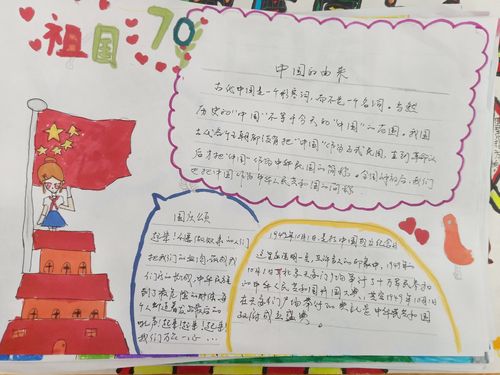 祖国70
中国的由来
古代中国是一个形容词，而不是一个名词。与数
历史的"中国"不等于今天的"中国"的范围，我国
古代各个王朝都没有把"中国"作为正式国名，直到革命以
后才把"中国"作为中华民国的简称。全国解放后，我们
也把中国作为中华人民共和国的简称
国庆颂
起来！不愿做奴隶的人们
把我们的血肉，筑成我
们的长城，中华民族
到了最危险的时候，每
个人都迫着发出最后的
吼声！起来！起来！起来！
我们万众一心…
1949年10月1日，是新中国成立纪念日
这里应该明一点，在许多人的印象中，1949年
10月1日，在北京天安门广场举行了十万军民参加
的中华人民共和国开国大典，其实1949年10月1日
在天安门广场举行的典礼是中华人民共和国
政府成立盛典。